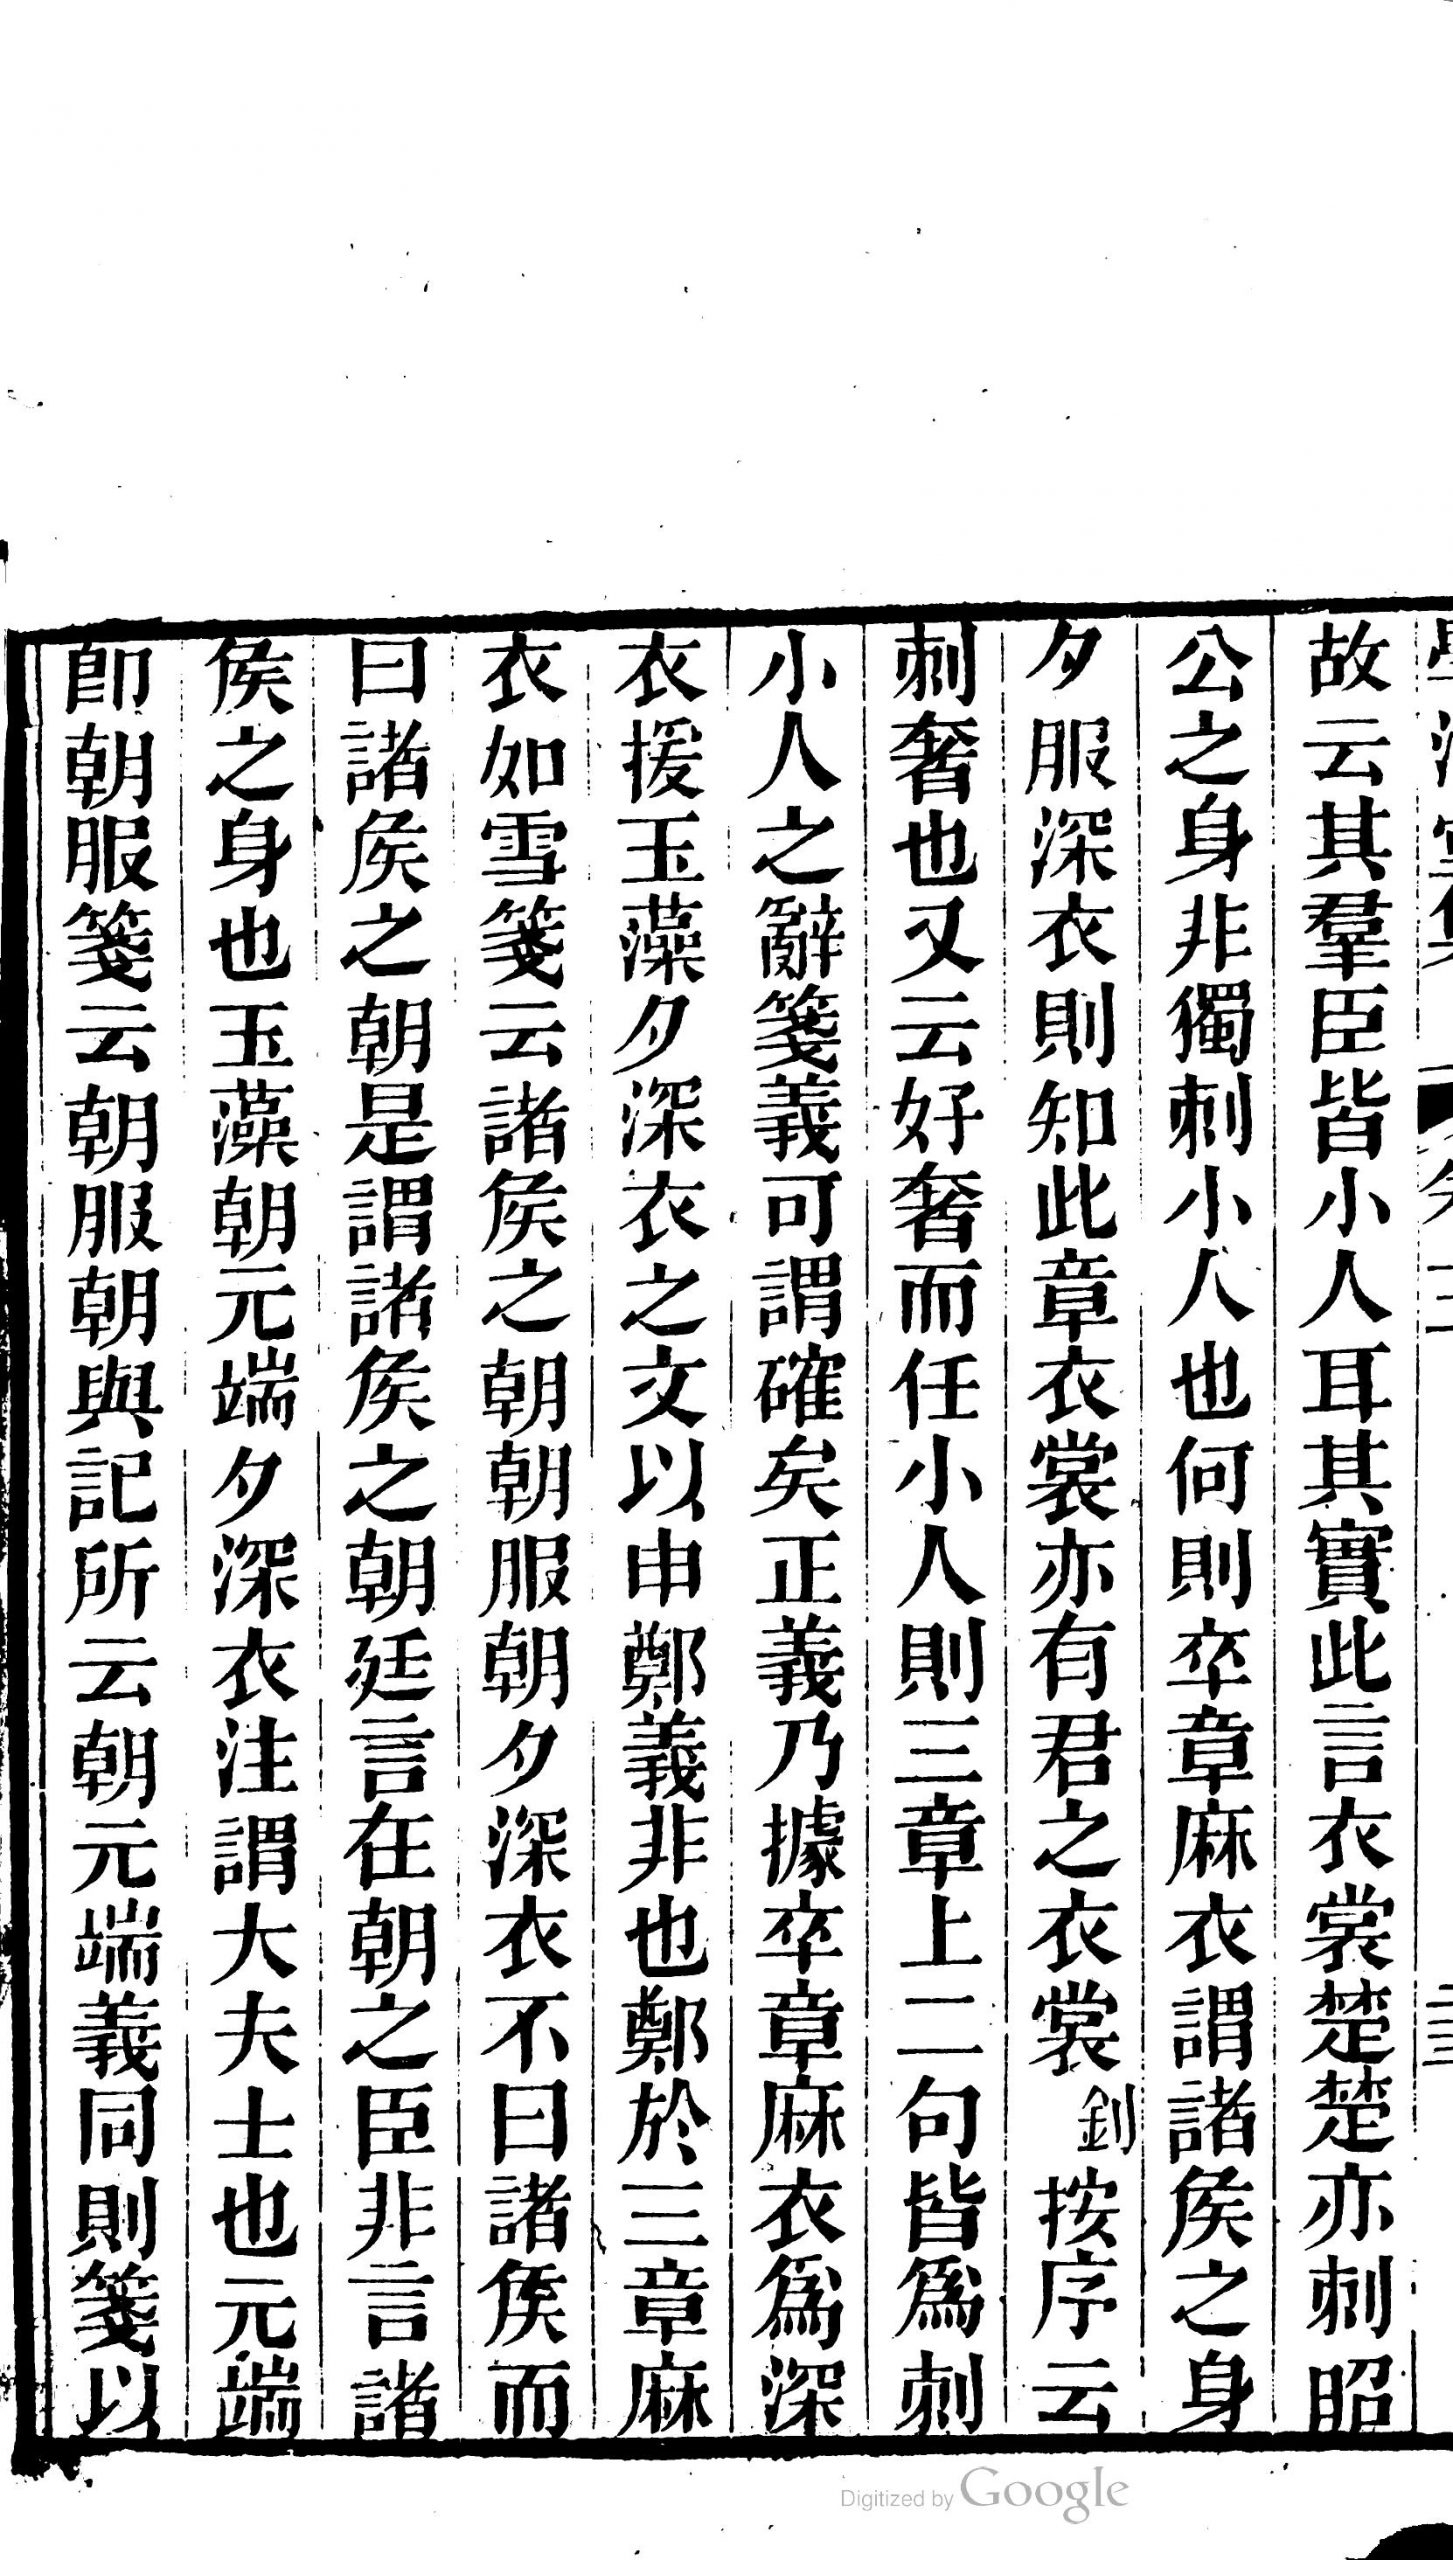 故云其羣臣皆小人耳其實此言衣裳楚楚亦刺昭
公之身非獨刺小人也何則卒章麻衣謂諸侯之身
夕服深衣則知此章衣裳亦有君之衣裳釗按序云
刺奢也又云好奢而任小人則三章上二句皆爲刺
小人之辭箋義可謂確矣正義乃據卒章麻衣爲深
衣援玉藻夕深衣之文以申鄭義非也鄭於三章麻
衣如雪箋云諸侯之朝朝服朝夕深衣不曰諸侯而
曰諸侯之朝是謂諸侯之朝廷言在朝之臣非言諸
侯之身也玉藻朝元端夕深衣注謂大夫士也元端
卽朝服箋云朝服朝與記所云朝元端義同則箋以
Digitized by Google